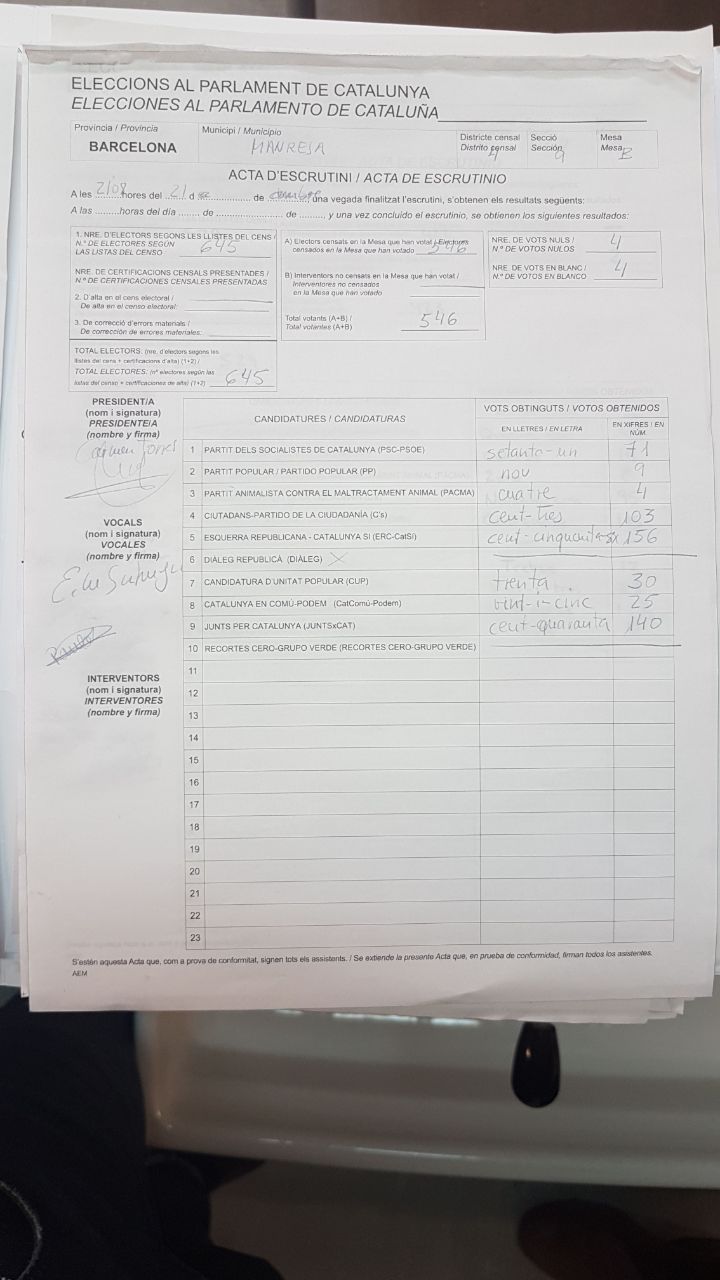 ELECCIONS AL PARLAMENT DE CATALUNYA
ELECCIONES AL PARLAMENTO DE CATALUÑA
Província / Provincia
BARCELONA
Municipi / Municipio
MANRESA
Districte censal
Distrito censal
4
Secció
Sección
9
Mesa
Mesa
B
ACTA D'ESCRUTINI / ACTA DE ESCRUTINIO
A les 21'08 hores del 21 d de de desembre, una vegada finalitzat l'escrutini, s'obtenen els resultats següents:
A las .........horas del día ....... de ............... de ........, y una vez concluido el escrutinio, se obtienen los siguientes resultados:
1. NRE. D'ELECTORS SEGONS LES LLISTES DEL CENS /
N.º DE ELECTORES SEGÚN
LAS LISTAS DEL CENSO
645
NRE. DE CERTIFICACIONS CENSALS PRESENTADES /
N.º DE CERTIFICACIONES CENSALES PRESENTADAS
2. D'alta en el cens electoral /
De alta en el censo electoral:
3. De correcció d'errors materials /
De corrección de errores materiales:
TOTAL ELECTORS: (nre. d'electors segons les
llistes del cens + certificacions d'alta) (1+2) /
TOTAL ELECTORES: (nº electores según las
listas del censo + certificaciones de alta) (1+2)
645
A) Electors censats en la Mesa que han votat / Electores
censados en la Mesa que han votado
546
B) Interventors no censats en la Mesa que han votat /
Interventores no censados
en la Mesa que han votado
Total votants (A+B) /
Total votantes (A+B)
546
NRE. DE VOTS NULS /
N.º DE VOTOS NULOS
4
NRE. DE VOTS EN BLANC /
N.º DE VOTOS EN BLANCO
4
PRESIDENT/A
(nom i signatura)
PRESIDENTE/A
(nombre y firma)
Carmen Torres
VOCALS
(nom i signatura)
VOCALES
(nombre y firma)
INTERVENTORS
(nom i signatura)
INTERVENTORES
(nombre y firma)
CANDIDATURES / CANDIDATURAS
VOTS OBTINGUTS / VOTOS OBTENIDOS
EN LLETRES / EN LETRA
EN XIFRES / EN NÚM.
1 PARTIT DELS SOCIALISTES DE CATALUNYA (PSC-PSOE) setanta-un 71
2 PARTIT POPULAR / PARTIDO POPULAR (PP) nou 9
3 PARTIT ANIMALISTA CONTRA EL MALTRACTAMENT ANIMAL (PACMA) cuatre 4
4 CIUTADANS-PARTIDO DE LA CIUDADANÍA (C's) cent-tres 103
5 ESQUERRA REPUBLICANA - CATALUNYA SÍ (ERC-CatSí) cent-cinquanta-sis 156
6 DIÀLEG REPUBLICÀ (DIÀLEG)
7 CANDIDATURA D'UNITAT POPULAR (CUP) trenta 30
8 CATALUNYA EN COMÚ-PODEM (CatComú-Podem) vint-i-cinc 25
9 JUNTS PER CATALUNYA (JUNTSxCAT) cent-quaranta 140
10 RECORTES CERO-GRUPO VERDE (RECORTES CERO-GRUPO VERDE)
11
12
13
14
15
16
17
18
19
20
21
22
23
S'estén aquesta Acta que, com a prova de conformitat, signen tots els assistents. / Se extiende la presente Acta que, en prueba de conformidad, firman todos los asistentes.
AEM